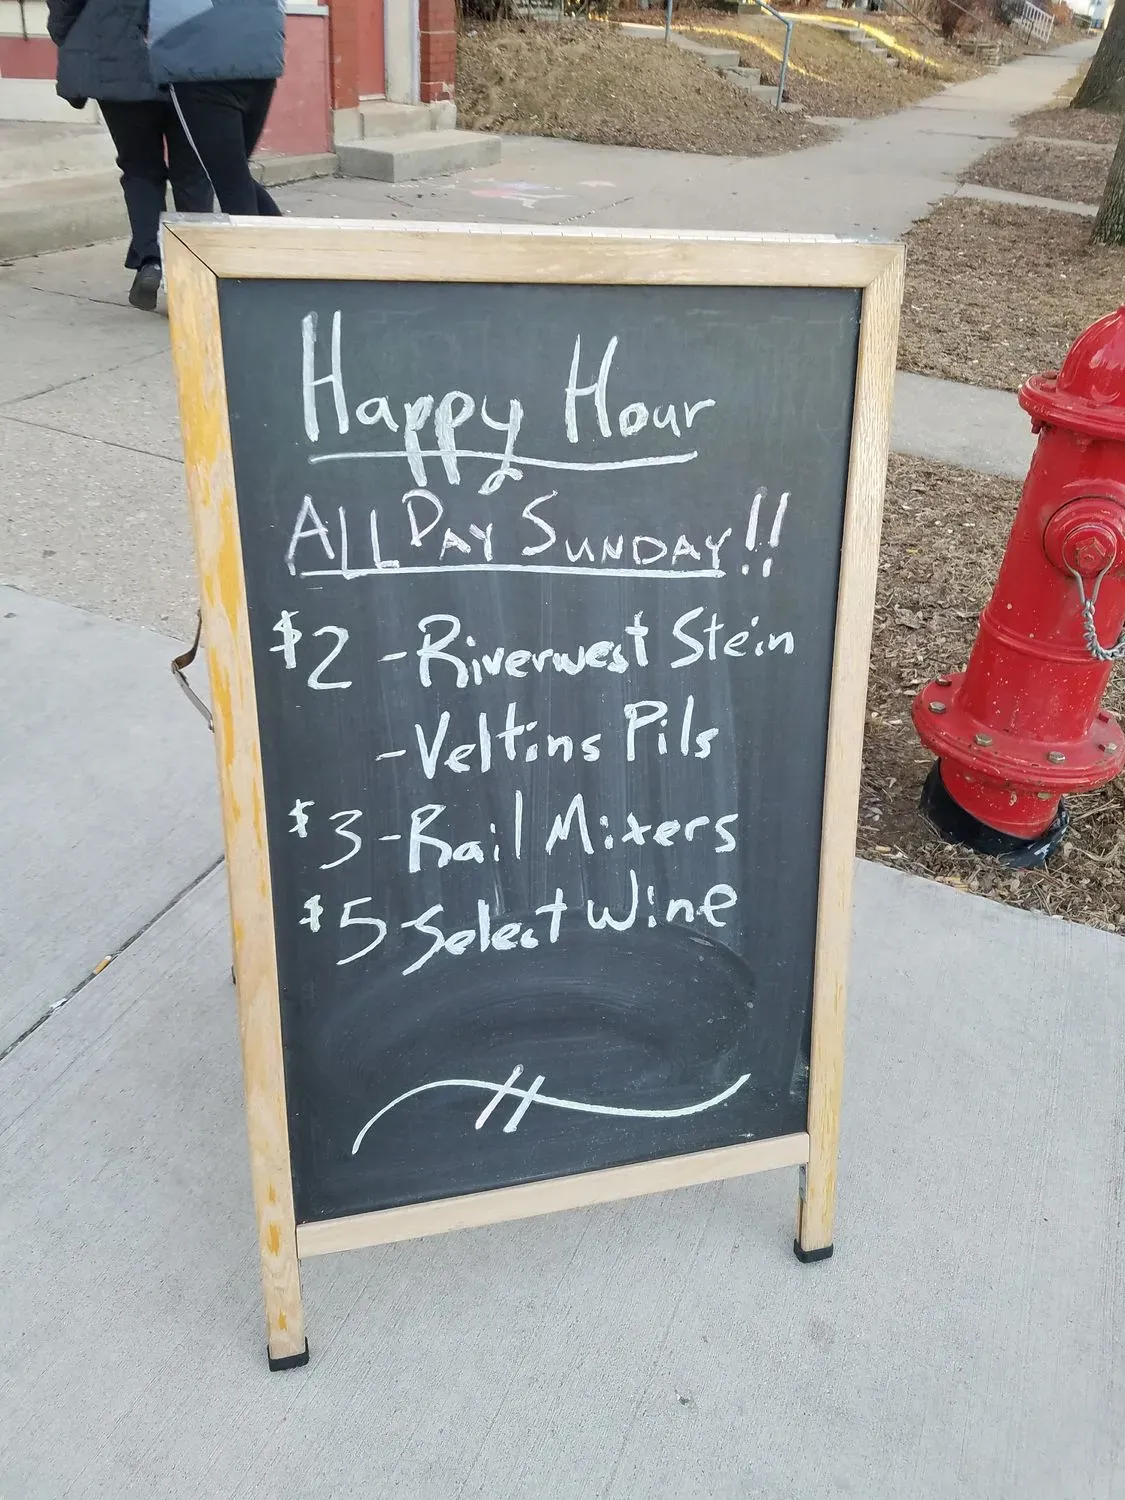 Happy Hour
ALL DAY SUNDAY!!
$2 - Riverwest Stein
- Veltins Pils
$3 - Rail Mixers
$5 - Select Wine